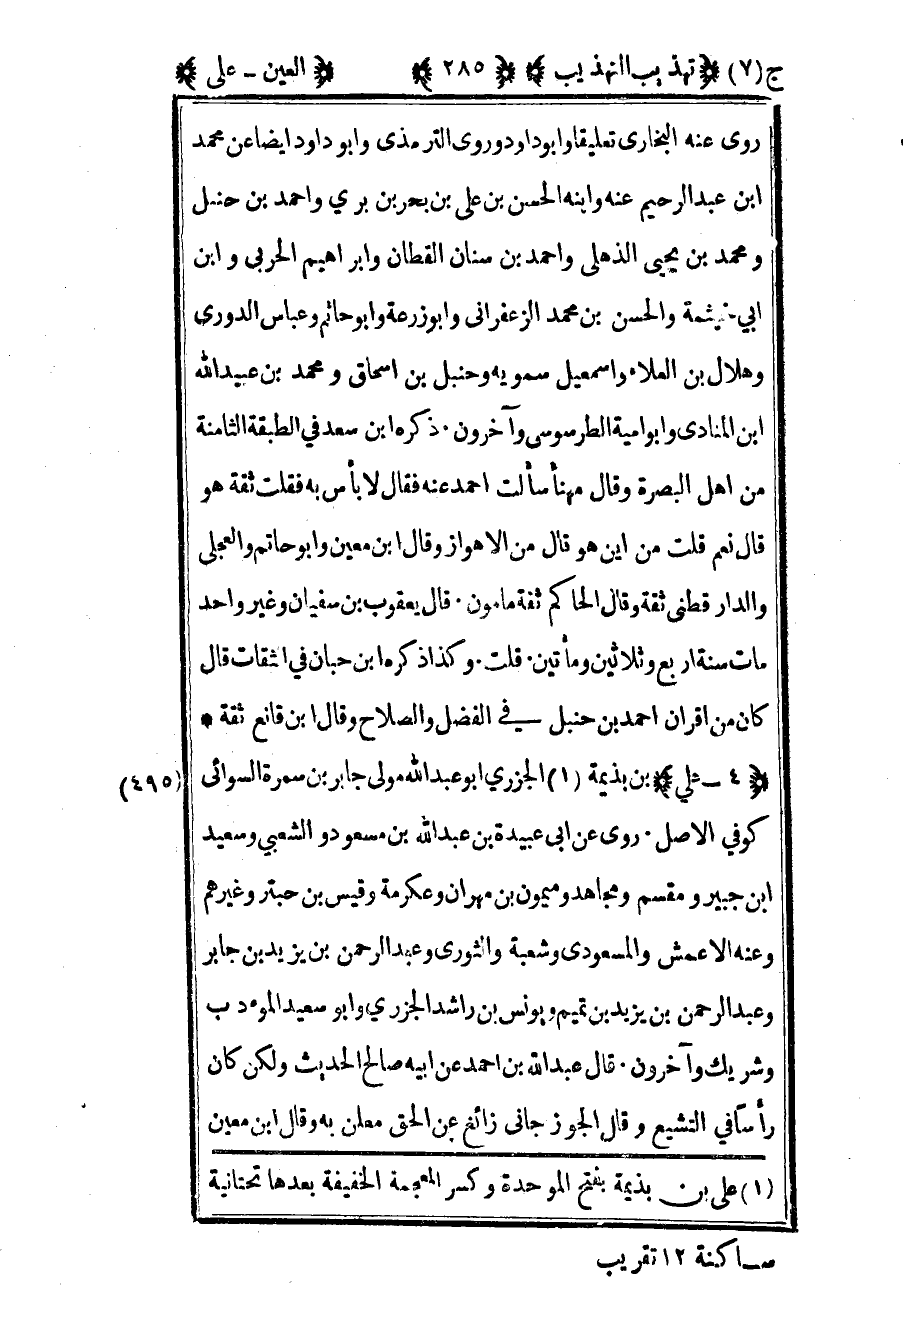 ج(٧) ﴿تهذيب التهذيب﴾ ﴿٢٨٥﴾ ﴿العين ـ على﴾
روى عنه البخارى تعليقا وابوداود وروى الترمذى وابو داود ايضا عن محمد
ابن عبدالرحيم عنه وابنه الحسن بن على بن بحر بن بري واحمد بن حنبل
و محمد بن يحيى الذهلى واحمد بن سنان القطان وابراهيم الحربي و ابن
ابي خيثمة والحسن بن محمد الزعفرانى وابوزرعة وابوحاتم وعباس الدوري
وهلال بن العلاء واسمعيل سمويه وحنبل بن اسحاق و محمد بن عبيدالله
ابن المنادى وابو امية الطرسوسى وآخرون ٠ ذكره ابن سعد في الطبقة الثامنة
من اهل البصرة وقال مهنأ سألت احمد عنه فقال لا بأس به فقلت ثقة هو
قال نعم قلت من اين هو قال من الاهواز وقال ابن معين وابو حاتم والعجلى
والدار قطنى ثقة وقال الحاكم ثقة مامون ٠ قال يعقوب بن سفيان وغير واحد
مات سنة اربع وثلاثين ومأتين ٠ قلت ٠ وكذا ذكره ابن حبان في الثقات قال
كان من اقران احمد بن حنبل في الفضل والصلاح وقال ابن قانع ثقة *
﴿٤ ـ على﴾ بن بذيمة (١) الجزري ابو عبدالله مولى جابر بن سمرة السوائى (٤٩٥)
كوفي الاصل ٠ روى عن ابى عبيدة بن عبدالله بن مسعود و الشعبي وسعيد
ابن جبير و مقسم ومجاهد و ميمون بن مهران وعكرمة وقيس بن حبتر وغيرهم
وعنه الاعمش والمسعودى وشعبة والثورى وعبدالرحمن بن يزيد بن جابر
وعبدالرحمن بن يزيد بن تميم ويونس بن راشد الجزري وابو سعيد المؤدب
وشريك وآخرون ٠ قال عبدالله بن احمد عن ابيه صالح الحديث ولكن كان
رأسا في التشيع و قال الجوزجانى زائغ عن الحق معلن به وقال ابن معين
(١) على بن بذيمة بفتح الموحدة وكسر المعجمة الخفيفة بعدها تحتانية
ساكنة ١٢ تقريب